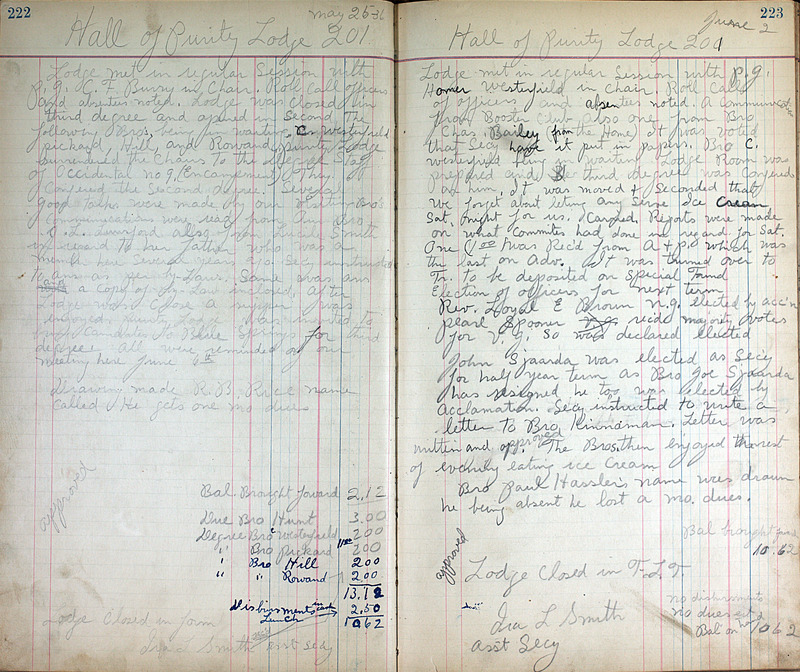 222
May 25-36
Hall of Purity Lodge 201
Lodge met in regular Session with
P.G. C. F. Bussy in Chair. Roll call officers
and absentees noted. Lodge was closed in
third degree and opened in Second. The
following Bros. being in waiting. C. Westerfield
pickard, Hill, and Rowand, purity Lodge
surrendered the Chairs to the degree Staff
of Occidental no 9, Encampment, They
Confered the Second degree. Several
good talks were made by our visiting Bro's
Communications were read from
J. L. Lunsford also from Lucile Smith
in regard to her father who was a
memb her Several years ago. Secy instructed
to ans as per by Laws. Same was ans
and a copy of by Law inclosed, after
Lodge was Close a
enjoyed. purity Lodge was invited to
Candidate to Blue Springs for third
degree. All were reminded of our
meeting here June 6th
Drawing made R. B. Price name
called. He gets one mo. dues
approved
Bal. Brought foward 2.12
Due Bro Hunt 3.00
Degree Bro C Westerfield 2.00
" Bro pickard 2.00
" Bro Hill 2.00
" " Rowand 2.00
13.12
Disbursments in cash 2.50
Lunch 10.62
Lodge Closed in form
Ira L Smith asst Secy
223
June 2
Hall of Purity Lodge 201
Lodge met in regular Session with P.G.
Homer Westerfield in Chair. Roll Call
of officers and absentees noted. A Communicat
from Booster Club also one from Bro
Chas. Bailey (from the Home) It was voted
that Secy have it put in papers. Bro C.
Westerfield being in waiten Lodge Room was
prepared and third degree was Confered
on him, It was moved & Seconded that
we forget about leting any Serve Ice Cream
Sat. night for us. Carried. Reports were made
on what Commites had done in regard for Sat.
One (1.00) was Rec'd from A + p. which was
the last on Adv. It was turned over to
Tr. to be deposited on Special Fund
Election of officers for next term
Rev. Loyal E Brown n.g. elected by acc'n
pearl Spooner rec'd majority votes
for V. G. so was declared elected
John Sjaarda was elected as Secy
for half year term as Bro Joe Sjaarda
has resigned he too was elected by
Acclamation. Secy instructed to write a
letter to Bro Kinndman. Letter was
written and approved of. The Bros. then enjoyed the rest
of evening eating ice Cream
Bro Paul Hassler's name was drawn
he being absent he lost a mo. dues.
Bal brought forwd
10.62
approved
Lodge Closed in F. L. T.
no disbursments
no dues
Bal on 10.62
Ira L Smith
asst Secy